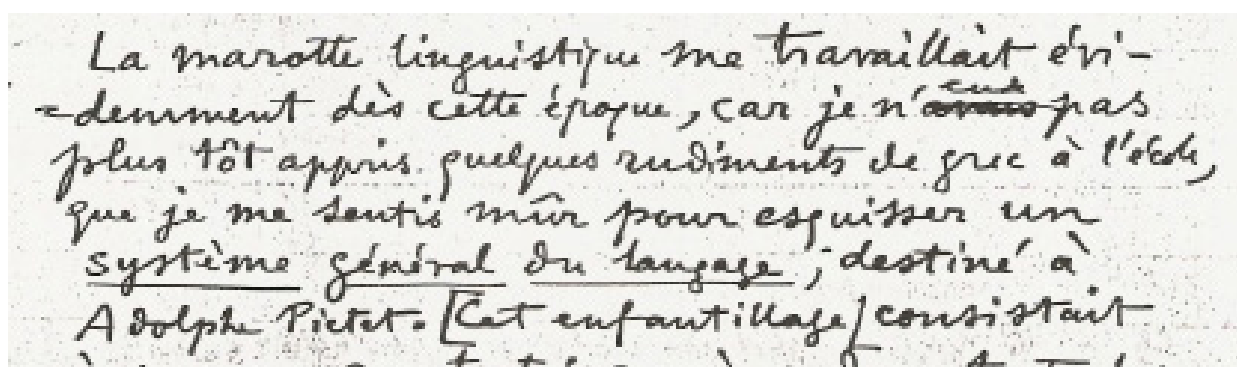 La marotte linguistique me travaillait évi-
=demment dès cette époque, car je n'eus pas
plus tôt appris quelques rudiments de grec à l'école,
que je me sentis mûr pour esquisser un
système général du langage ; destiné à
Adolphe Pictet. [Cet enfantillage] consistait